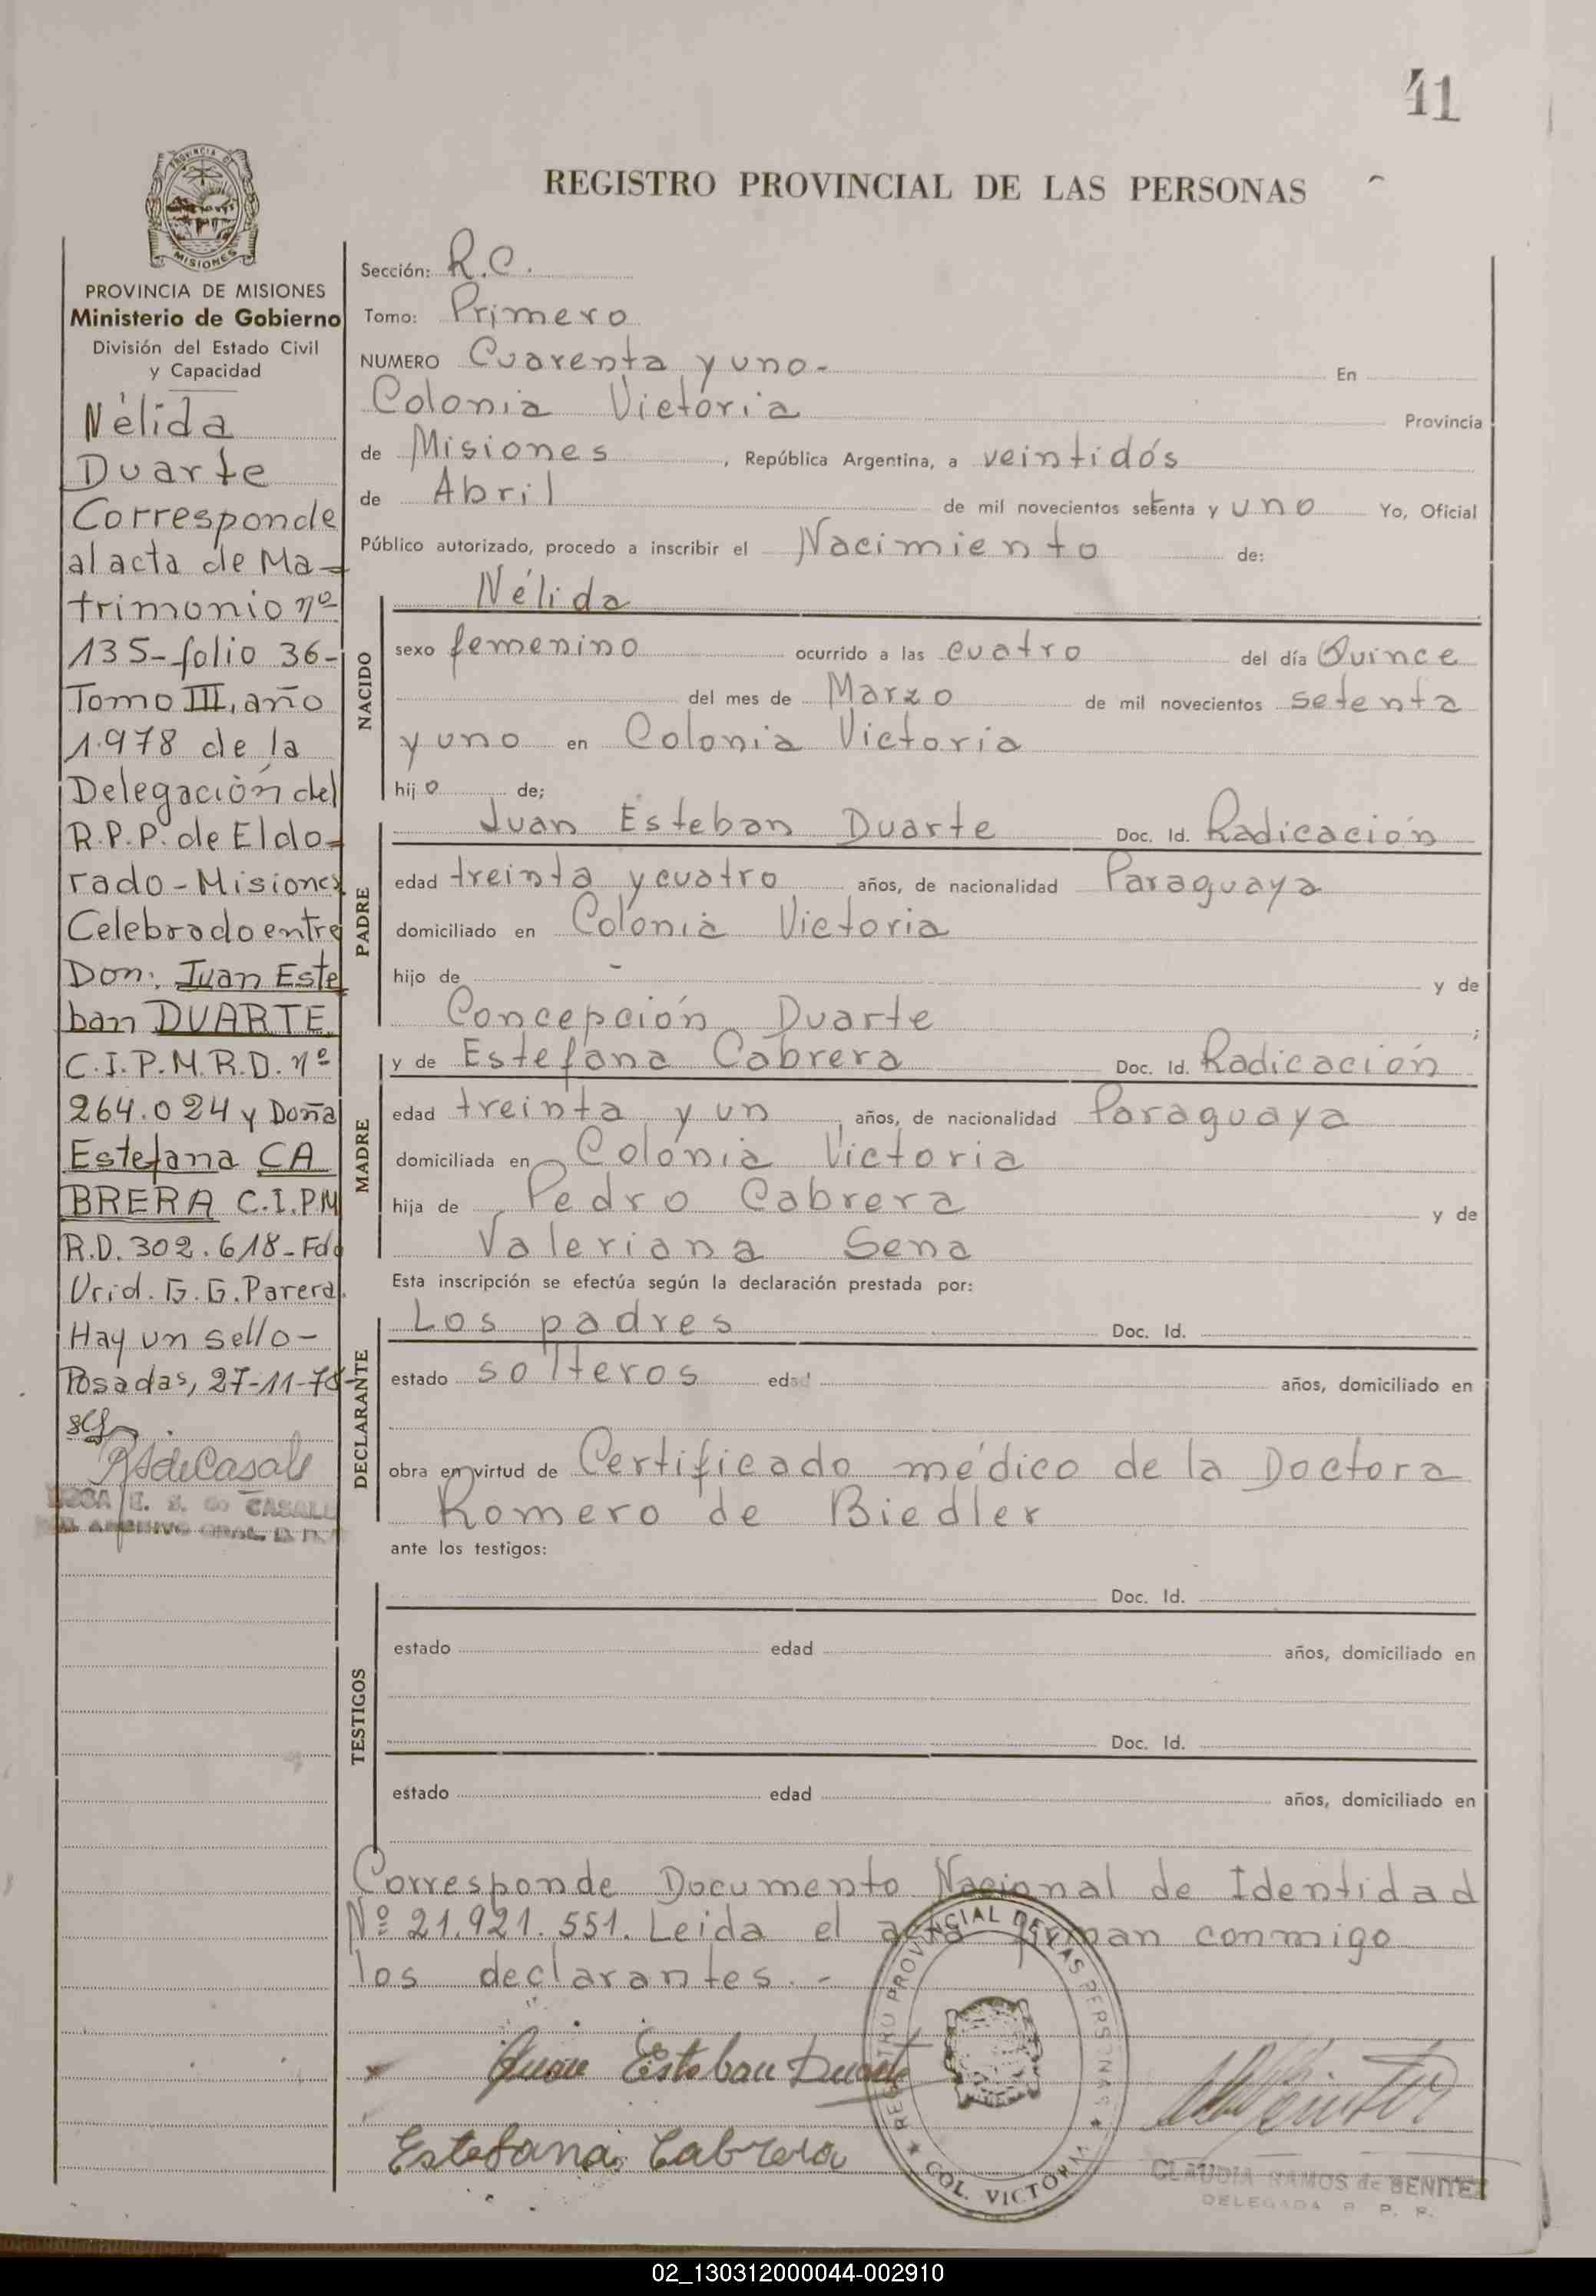 41
REGISTRO PROVINCIAL DE LAS PERSONAS
PROVINCIA DE
MISIONES
PROVINCIA DE MISIONES
Ministerio de Gobierno
División del Estado Civil
y Capacidad
Nélida
Duarte
Corresponde
al acta de Ma-
trimonio nº
135-folio 36-
Tomo III, año
1.978 de la
Delegación del
R.P.P. de Eldo-
rado-Misiones
Celebrado entre
Don: Juan Este
ban DUARTE
C.I.P.M.R.D. nº
264.024 y Doña
Estefana CA
BRERA C.I.P.M
R.D. 302.618-Fdo
Urid. G. G. Parera.
Hay un sello-
Posadas, 27-11-78-
Sección: R.C.
Tomo: Primero
NUMERO Cuarenta y uno- En
Colonia Victoria Provincia
de Misiones, República Argentina, a veintidós
de Abril de mil novecientos setenta y uno Yo, Oficial
Público autorizado, procedo a inscribir el Nacimiento de:
NACIDO
Nélida
sexo femenino ocurrido a las cuatro del día Quince
del mes de Marzo de mil novecientos setenta
y uno en Colonia Victoria
hijo de;
PADRE
Juan Esteban Duarte Doc. Id. Radicación
edad treinta y cuatro años, de nacionalidad Paraguaya
domiciliado en Colonia Victoria
hijo de - y de
Concepción Duarte ;
MADRE
y de Estefana Cabrera Doc. Id. Radicación
edad treinta y un años, de nacionalidad Paraguaya
domiciliada en Colonia Victoria
hija de Pedro Cabrera y de
Valeriana Sena
Esta inscripción se efectúa según la declaración prestada por:
DECLARANTE
Los padres Doc. Id.
estado solteros edad años, domiciliado en
obra en virtud de Certificado médico de la Doctora
Romero de Biedler
ante los testigos:
TESTIGOS
Doc. Id.
estado edad años, domiciliado en
Doc. Id.
estado edad años, domiciliado en
Corresponde Documento Nacional de Identidad
Nº 21.921.551. Leida el acta firman conmigo
los declarantes.-
Juan Esteban Duarte
Estefana Cabrera
REGISTRO PROVINCIAL DE LAS PERSONAS
COL. VICTORIA
CLAUDIA RAMOS de BENITEZ
DELEGADA R. P. P.
02_130312000044-002910